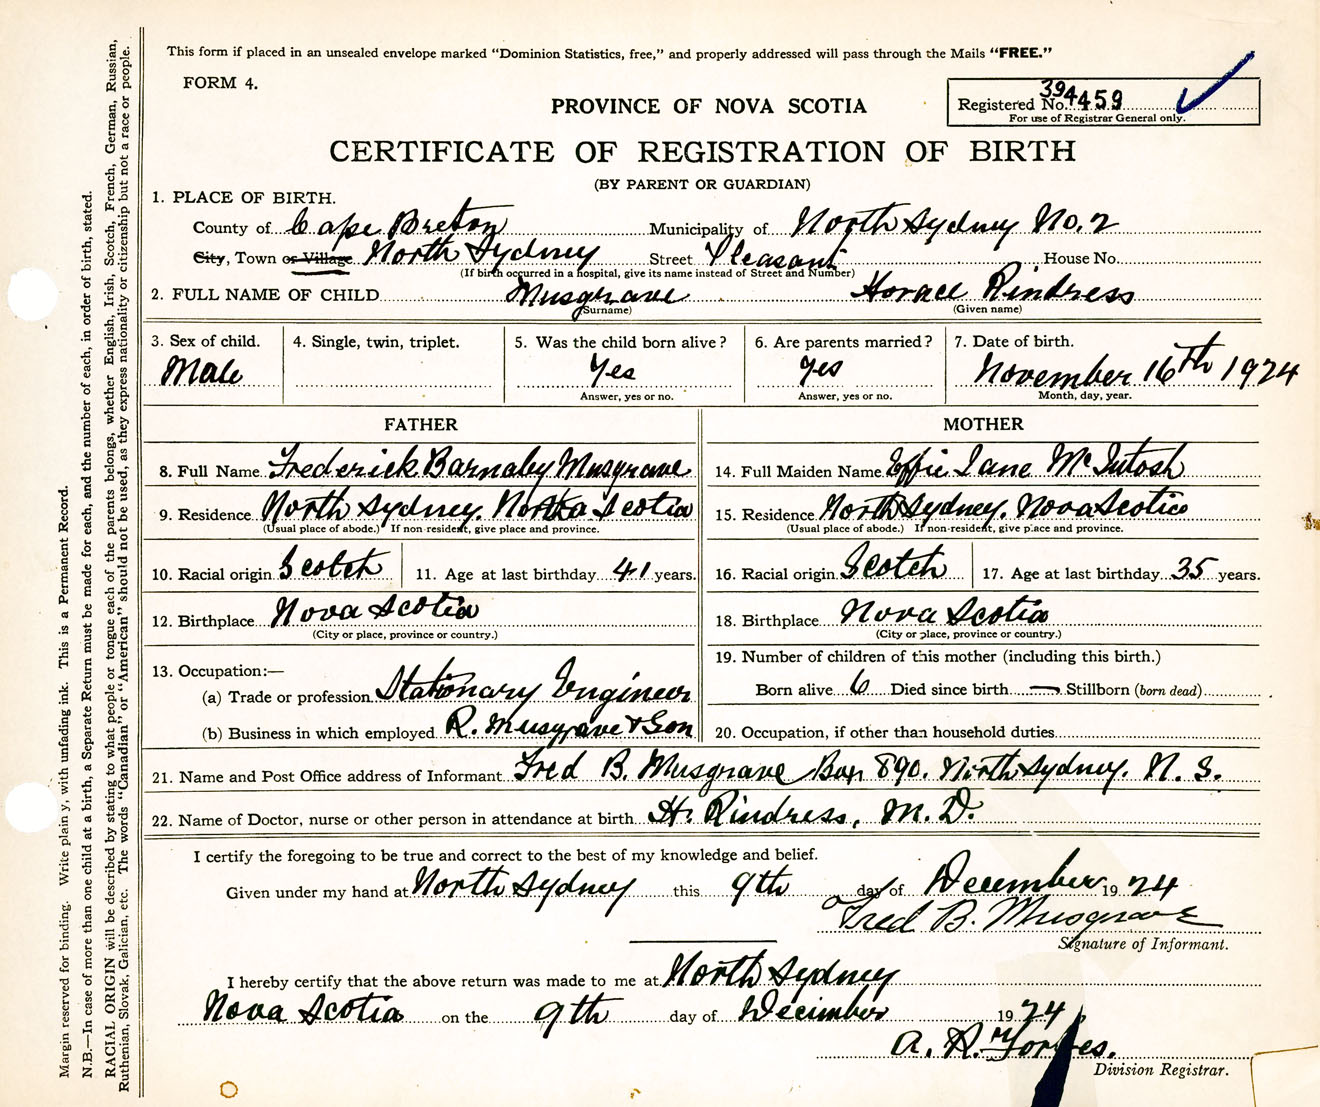 This form if placed in an unsealed envelope marked "Dominion Statistics, free," and properly addressed will pass through the Mails "FREE."
FORM 4.
PROVINCE OF NOVA SCOTIA
Registered No. 394459
For use of Registrar General only.
CERTIFICATE OF REGISTRATION OF BIRTH
(BY PARENT OR GUARDIAN)
1. PLACE OF BIRTH.
County of Cape Breton Municipality of North Sydney No. 2
City, Town or Village North Sydney Street Pleasant House No.
(If birth occurred in a hospital, give its name instead of Street and Number)
2. FULL NAME OF CHILD Musgrave Horace Rindress
(Surname) (Given name)
3. Sex of child. 4. Single, twin, triplet. 5. Was the child born alive? 6. Are parents married? 7. Date of birth.
Male Yes Yes November 16th 1924
Answer, yes or no. Answer, yes or no. Month, day, year.
FATHER MOTHER
8. Full Name Frederick Barnaby Musgrave 14. Full Maiden Name Effie Jane McIntosh
9. Residence North Sydney. Nova Scotia 15. Residence North Sydney. Nova Scotia
(Usual place of abode.) If non-resident, give place and province. (Usual place of abode.) If non-resident, give place and province.
10. Racial origin Scotch 11. Age at last birthday 41 years. 16. Racial origin Scotch 17. Age at last birthday 35 years.
12. Birthplace Nova Scotia 18. Birthplace Nova Scotia
(City or place, province or country.) (City or place, province or country.)
13. Occupation:— 19. Number of children of this mother (including this birth.)
(a) Trade or profession Stationary Engineer Born alive 6 Died since birth — Stillborn (born dead)
(b) Business in which employed R. Musgrave & Son 20. Occupation, if other than household duties
21. Name and Post Office address of Informant Fred B. Musgrave Box 890. North Sydney. N. S.
22. Name of Doctor, nurse or other person in attendance at birth H. Rindress, M. D.
I certify the foregoing to be true and correct to the best of my knowledge and belief.
Given under my hand at North Sydney this 9th day of December 1924
Fred B. Musgrave
Signature of Informant.
I hereby certify that the above return was made to me at North Sydney
Nova Scotia on the 9th day of December 1924
A. R. Forbes.
Division Registrar.
Margin reserved for binding. Write plainly, with unfading ink. This is a Permanent Record.
N.B.—In case of more than one child at a birth, a Separate Return must be made for each, and the number of each, in order of birth, stated.
RACIAL ORIGIN will be described by stating to what people or tongue each of the parents belongs, whether English, Irish, Scotch, French, German, Russian,
Ruthenian, Slovak, Galician, etc. The words "Canadian" or "American" should not be used, as they express nationality or citizenship but not a race or people.